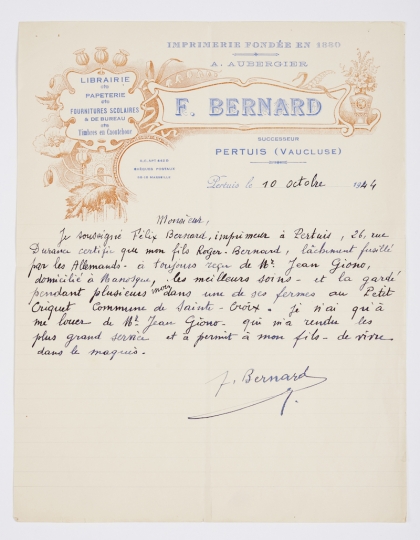 IMPRIMERIE FONDÉE EN 1850
A. AUBERGIER
F. BERNARD
SUCCESSEUR
PERTUIS (VAUCLUSE)
LIBRAIRIE
PAPETERIE
FOURNITURES SCOLAIRES
& DE BUREAU
Timbres en Caoutchouc
CHÈQUES POSTAUX
Pertuis le 10 octobre 1944
Monsieur,
Je soussigné Félix Bernard, imprimeur à Pertuis, 26, rue
Durance certifie que mon fils Roger-Bernard, lâchement fusillé
par les Allemands - à toujours reçu de Mr. Jean Giono,
domicilié à Manosque, les meilleurs soins - et la gardé
pendant plusieurs mois dans une de ses fermes au Petit
Criquet Commune de Sainte-Croix. Je n'ai qu'à
me louer de Mr. Jean Giono - qui m'a rendu les
plus grand service et a permit à mon fils - de vivre
dans le maquis.
F. Bernard